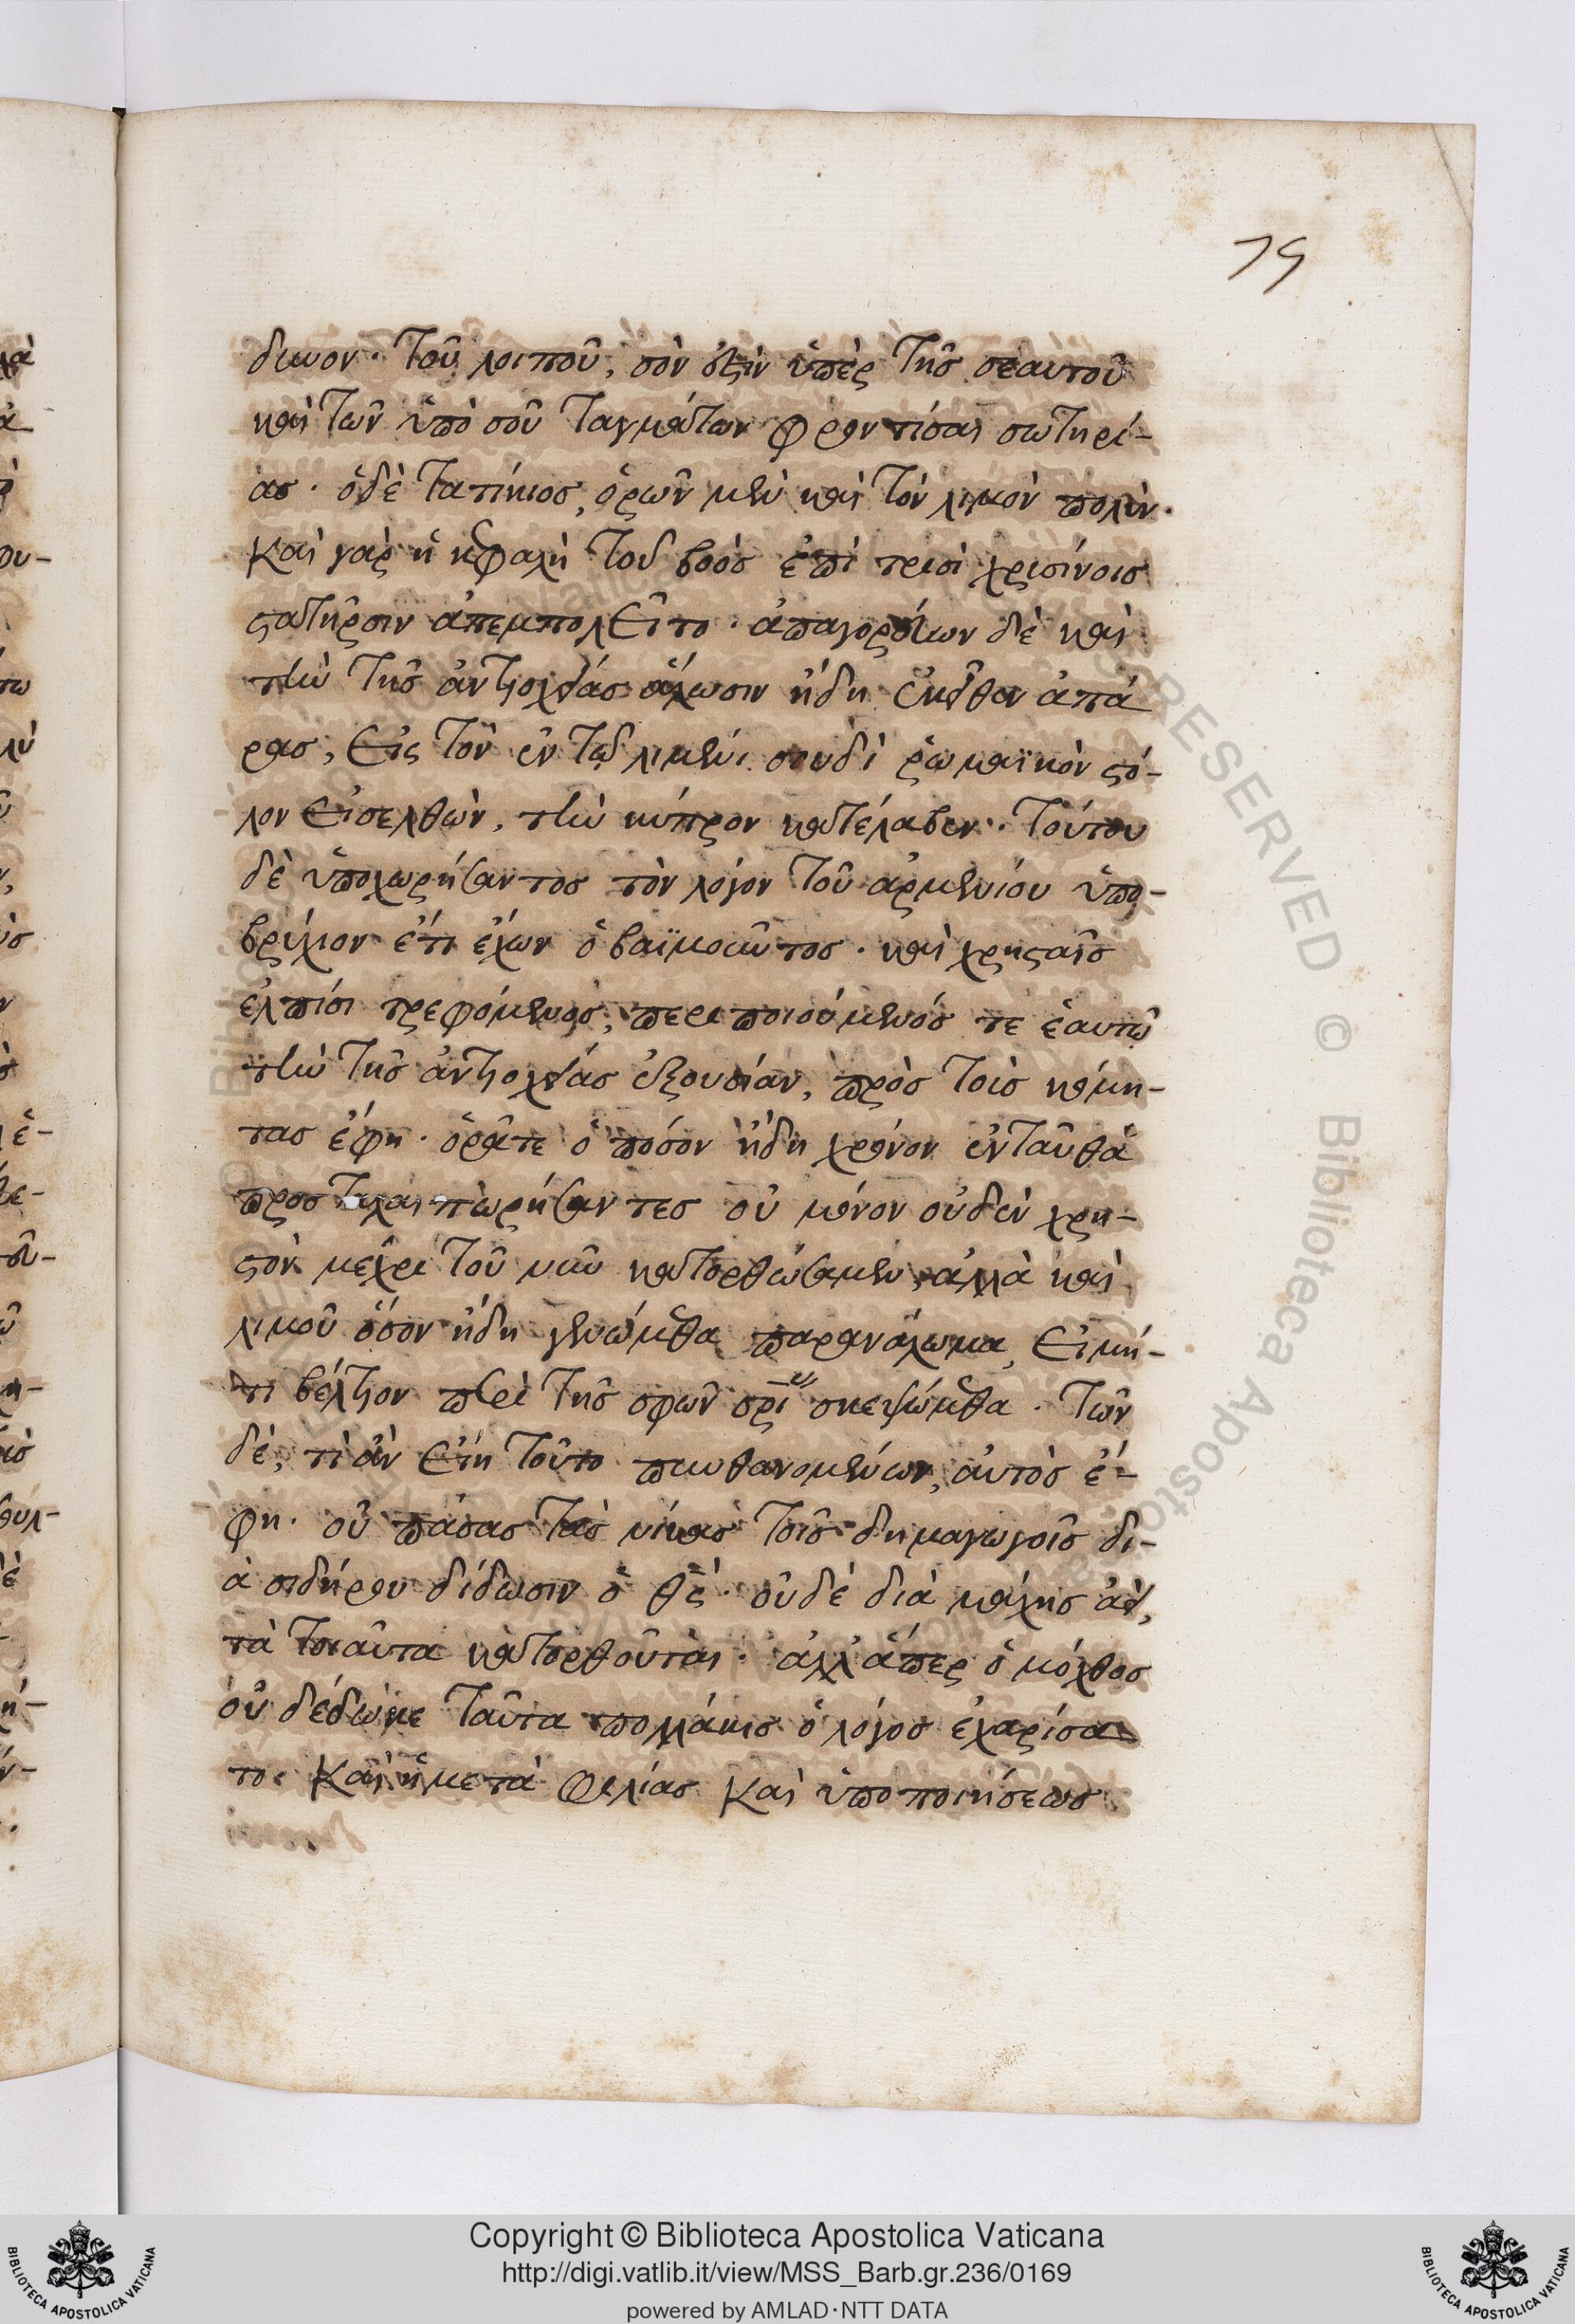 79
δυνον. τοῦ λοιποῦ, σόν ἐστὶν ὑπὲρ τῆς σεαυτοῦ
καὶ τῶν ὑπὸ σοῦ ταγμάτων φροντίσαι σωτηρί-
ας. ὁ δὲ τατίκιος, ὁρῶν μὲν καὶ τὸν λιμὸν πολύν.
καὶ γὰρ ἡ κεφαλὴ τοῦ βοὸς ἐπὶ τρισὶ χρισίνοις
στατῆρσιν ἀπεμπολεῖτο. ἀπαγορεύων δὲ καὶ
τὴν τῆς ἀντιοχείας ἅλωσιν ἤδη ἐκεῖθεν ἀπά
ρας, εἰς τὸν ἐν τῷ λιμένι σουδὶ ῥωμαϊκὸν στό-
λον εἰσελθὼν, τὴν κύπρον κατέλαβεν. τούτου
δὲ ὑποχωρήσαντος τὸν λόγον τοῦ ἀρμενίου ὑπο-
βρύχιον ἔτι ἔχων ὁ βαϊμοῦντος. καὶ χρησταῖς
ἐλπίσι τρεφόμενος, περιποιούμενός τε ἑαυτῶ
τὴν τῆς ἀντιοχείας ἐξουσίαν, πρὸς τοὺς κόμη-
τας ἔφη. ὁρᾶτε ὁπόσον ἤδη χρόνον ἐνταῦθα
προσταλαιπωρήσαντες οὐ μόνον οὐδὲν χρη-
στὸν μέχρι τοῦ νῦν κατορθώσαμεν, ἀλλὰ καὶ
λιμοῦ ὅσον ἤδη γενώμεθα παρανάλωμα, εἰ μή-
τι βέλτιον περὶ τῆς σφῶν σρι̅ σκεψώμεθα. τῶν
δὲ, τί ἂν εἴη τοῦτο πυνθανομένων, αὐτὸς ἔ-
φη. οὐ πάσας τὰς νίκας τοῖς δημαγωγοῖς δι-
ὰ σιδήρου δίδωσιν ὁ θς̅. οὐδὲ διὰ μάχης ἀεὶ,
τὰ τοιαῦτα κατορθοῦται. ἀλλ' ἅπερ ὁ μόχθος
οὐ δέδωκε ταῦτα πολλάκις ὁ λόγος ἐχαρίσα
το. καὶ ἡ μετὰ φιλίας καὶ ὑποποιήσεως
Copyright © Biblioteca Apostolica Vaticana
http://digi.vatlib.it/view/MSS_Barb.gr.236/0169
powered by AMLAD·NTT DATA
BIBLIOTECA APOSTOLICA VATICANA
BIBLIOTECA APOSTOLICA VATICANA